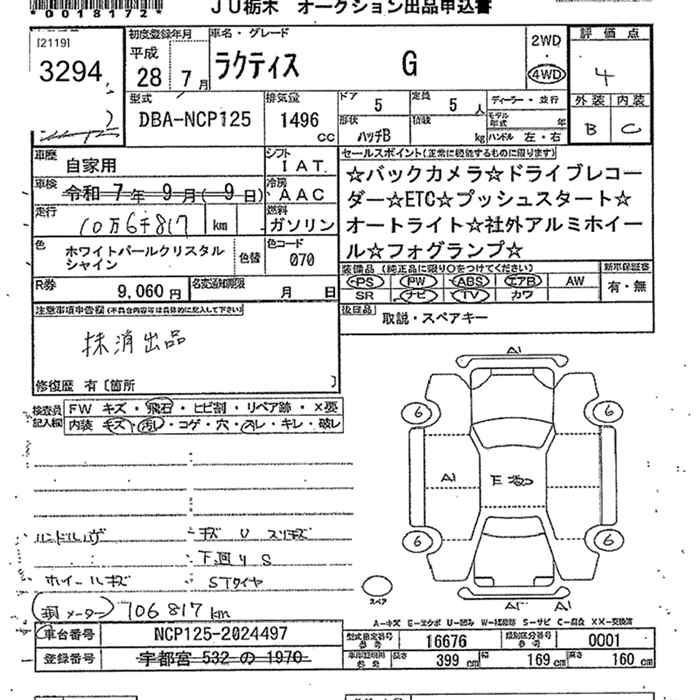 *00018172*
JU栃木 オークション出品申込書
[2119]
3294
初度登録年月
平成
28年 7月
車名・グレード
ラクティス G
2WD
4WD
評価点
4
外装 内装
B C
型式
DBA-NCP125
排気量
1496 cc
ドア
5
定員
5人
形状
ハッチB
積載
kg
ディーラー・並行
モデル年式 年
ハンドル 左・右
車歴 自家用
シフト IAT
車検 令和 7年 9月( 9日)
冷房 AAC
走行 10万6千817 km
燃料 ガソリン
色 ホワイトパールクリスタル
シャイン
色替
色コード
070
R券 9,060円
名変通知期限 月 日
セールスポイント(正常に機能するものに限ります)
☆バックカメラ☆ドライブレコー
ダー☆ETC☆プッシュスタート☆
オートライト☆社外アルミホイー
ル☆フォグランプ☆
装備品(純正品に限り○をつけてください)
PS PW ABS エアB AW
SR ナビ TV カワ
新車保証書
有・無
後日品 取説・スペアキー
注意事項申告欄(不具合内容等は具体的に記入して下さい)
抹消出品
修復歴 有〔箇所 〕
検査員記入欄
FW キズ・飛石・ヒビ割・リペア跡・X要
内装 キズ・汚レ・コゲ・穴・スレ・キレ・破レ
キズ U スリキズ
下回り S
ホイールキズ STタイヤ
メーター 106817 km
A1
6 6
A1
6 6
A1 A1
スペア
A-キズ E-エクボ U-凹み S-サビ C-腐食 XX-交換済
車台番号 NCP125-2024497
登録番号 宇都宮 532 の 1970
型式指定番号 参考 16676
類別区分番号 参考 0001
長さ 399 cm 幅 169 cm 高さ 160 cm